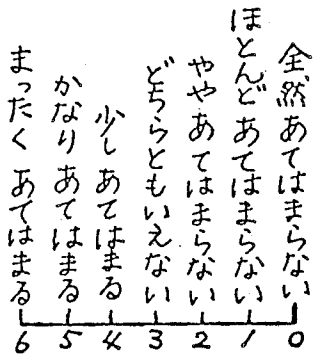 全然あてはまらない
ほとんどあてはまらない
ややあてはまらない
どちらともいえない
少しあてはまる
かなりあてはまる
まったくあてはまる
6 5 4 3 2 1 0